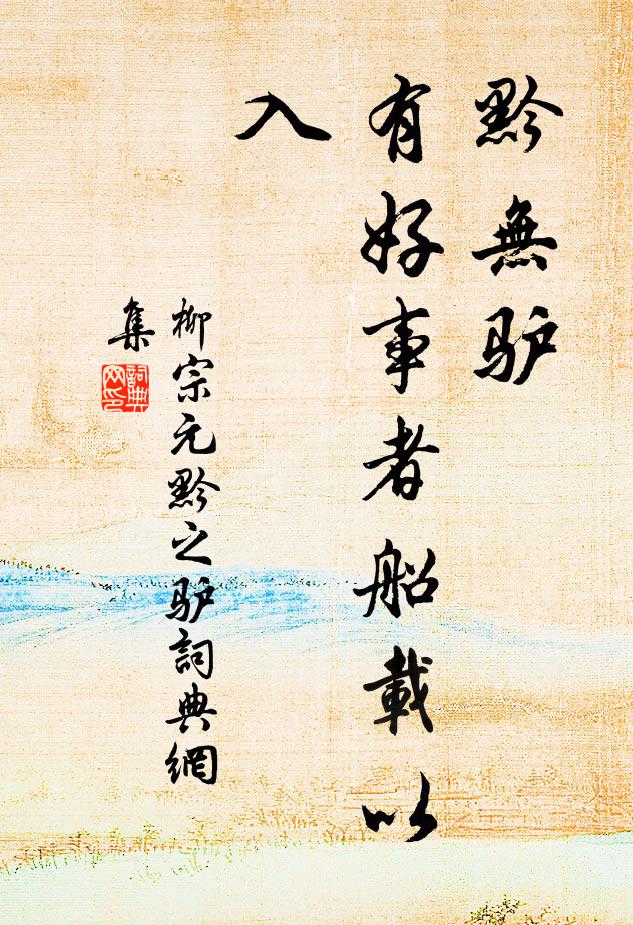 黔無驴
有好事者船載以
入
柳宗元黔之驴詞典網
集
詞典
网印